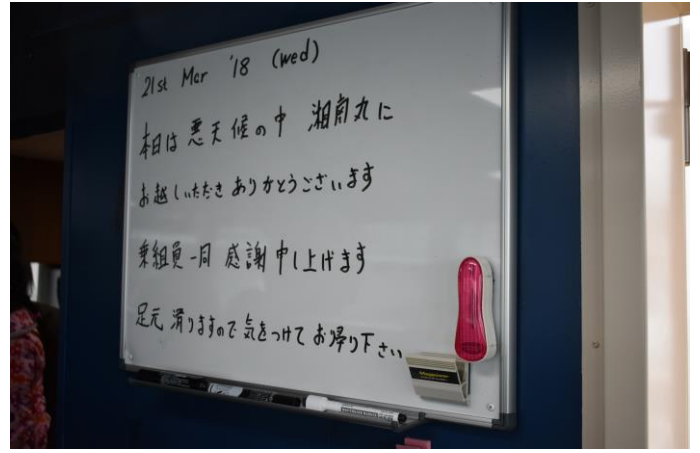 21st Mar '18 (wed)
本日は 悪天候の中 湘南丸に
お越しいただき ありがとうございます
乗組員一同 感謝申し上げます
足元 滑りますので 気をつけて お帰り下さい